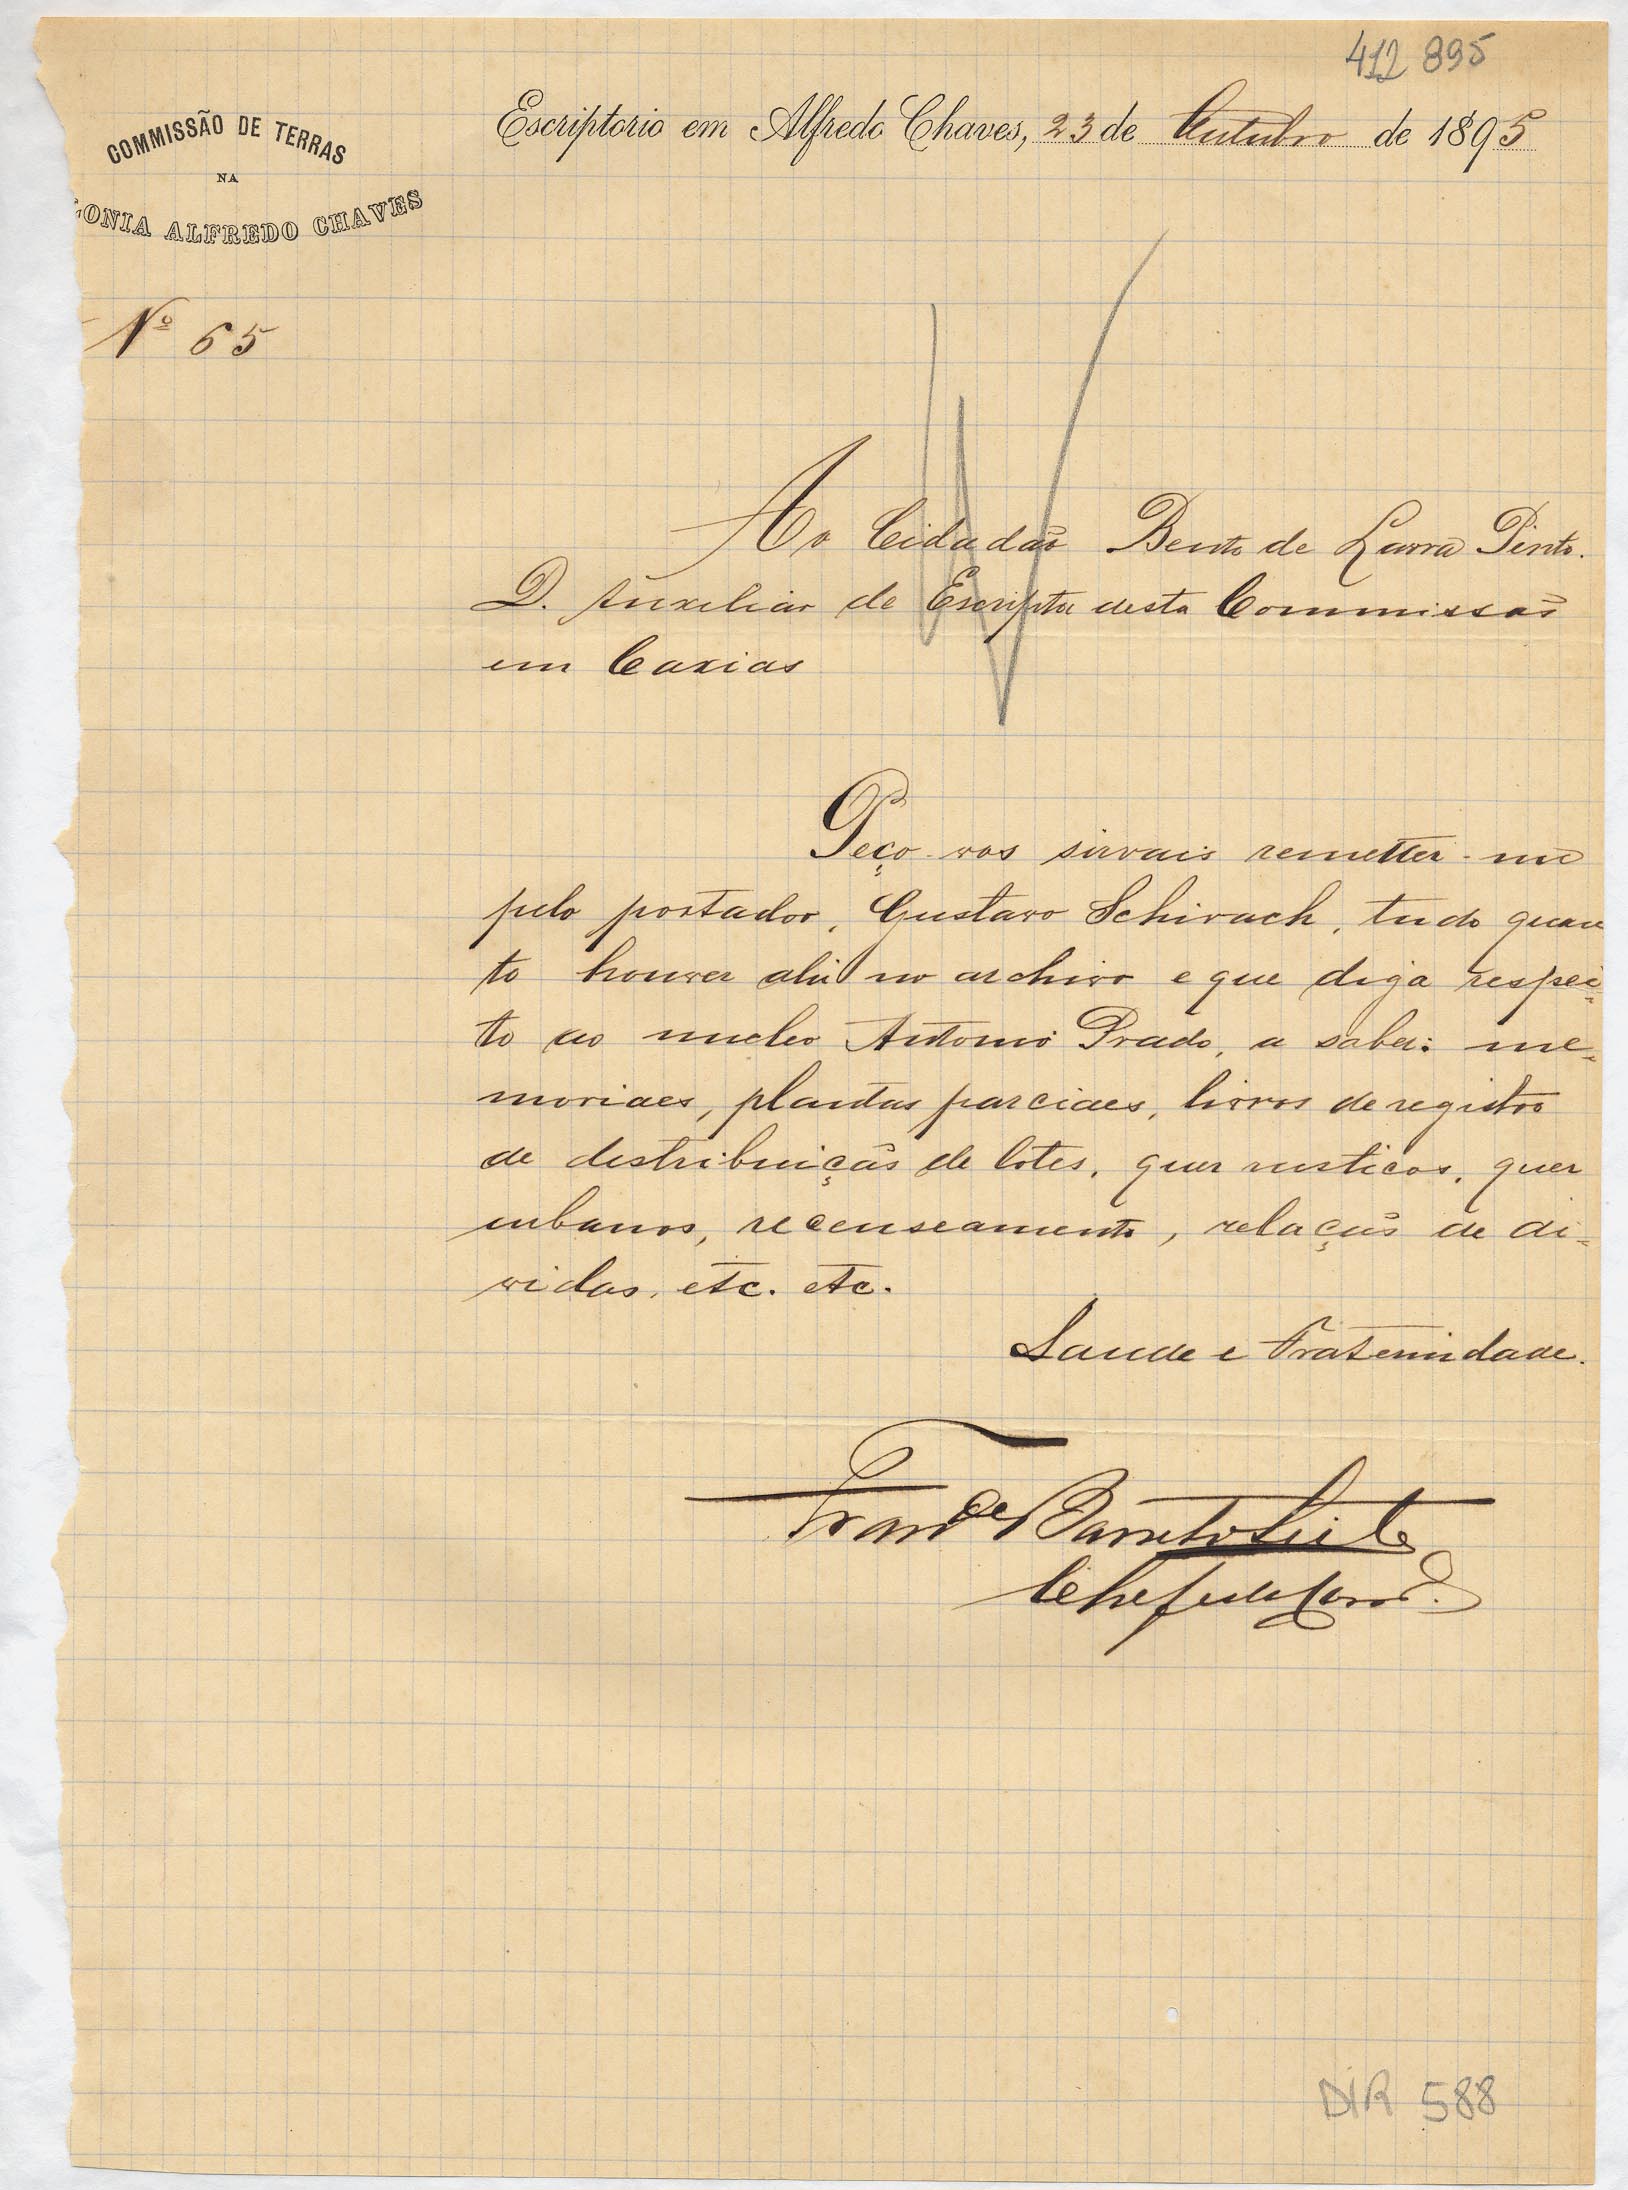 412 895
COMMISSÃO DE TERRAS
NA
LONIA ALFREDO CHAVES
Escriptorio em Alfredo Chaves, 23 de Outubro de 1895
Nº 65
Ao Cidadão Bento de Lavra Pinto.
D. Auxiliar de Escripta desta Commissão
em Caxias
Peço-vos sirvais remetter-me
pelo portador, Gustavo Schirach, tudo quan
to houver ahi no archivo e que diga respei=
to ao nucleo Antonio Prado, a saber: me=
moriaes, plantas parciaes, livros de registro
de distribuição de lotes, quer rusticos, quer
urbanos, recenseamento, relação de di=
vidas, etc. etc.
Saude e Fraternidade.
Barreto Leite
Chefe da Comm
DIR 588